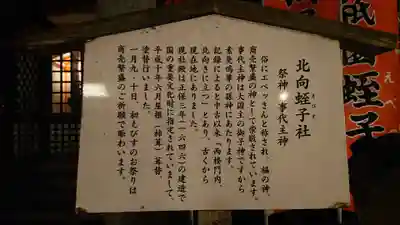 北向蛭子社
えびす
祭神 事代主神
俗にエベッさんと称され、福の神、
商売繁盛の神として崇敬されています。
事代主神は大国主の御子神ですから
素戔嗚尊の孫神にあたります。
記録によると中古以来「西楼門内、
北向きに立つ」とあり、古くから
現在地にありました。
現社殿は正保三年(一六四六)の建造で
国の重要文化財に指定されていまして
平成十年六月屋根(柿葺)葺替、
塗替行いました。
一月九、十日、初えびすのお祭りは
商売繁盛のご祈願で賑わいます。
祇園蛭子